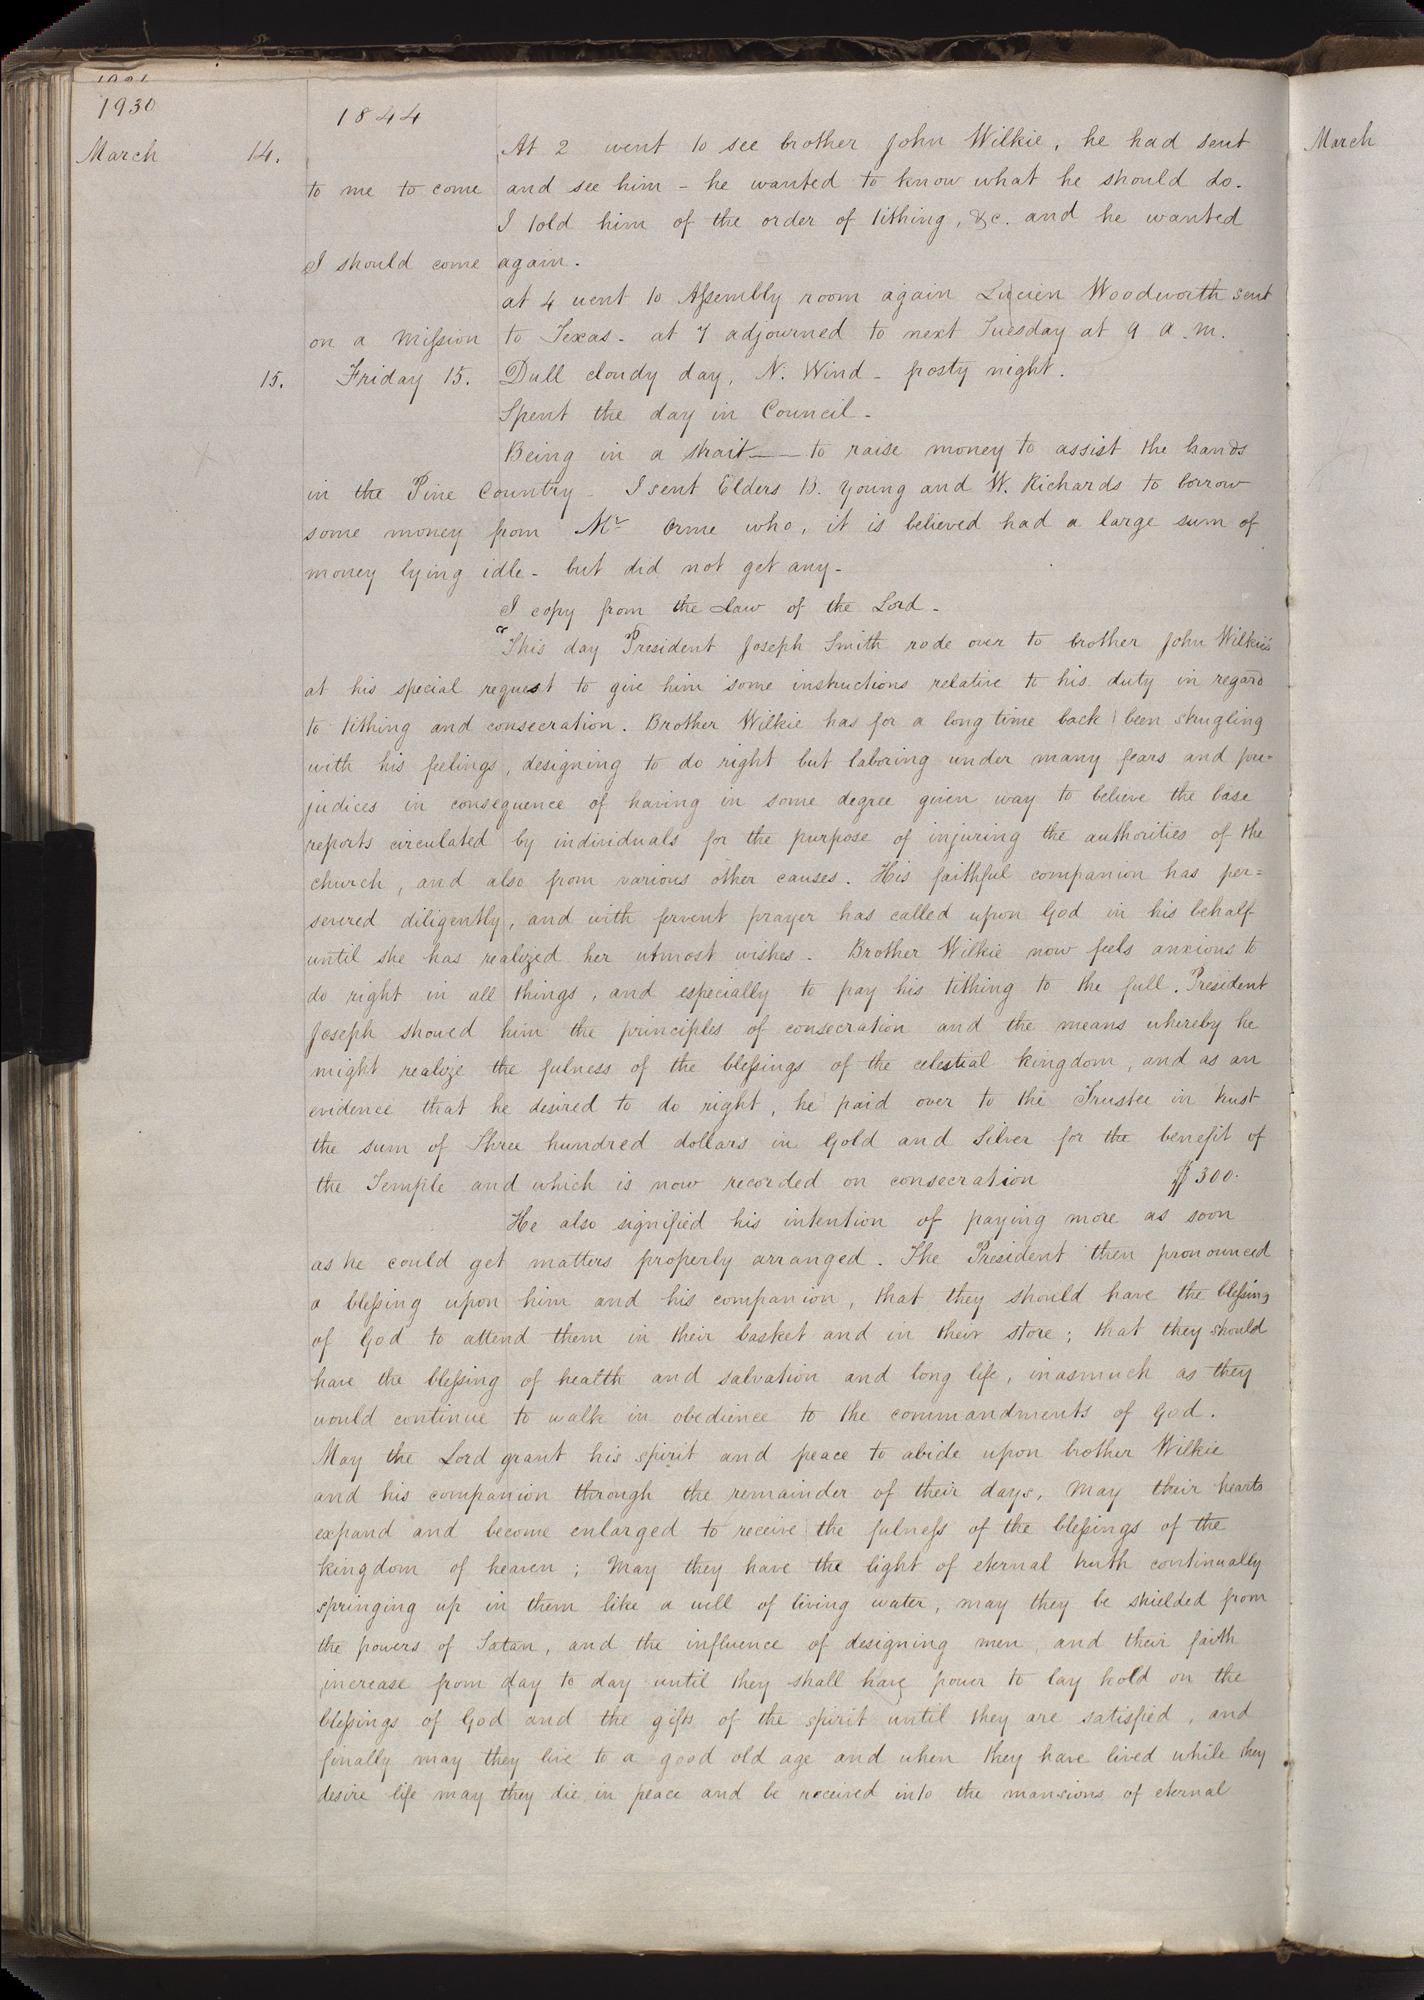 1930
1844
March 14. At 2 went to see brother John Wilkie, he had sent
to me to come and see him - he wanted to know what he should do.
I told him of the order of tithing, &c. and he wanted
I should come again.
at 4 went to Assembly room again Lucien Woodworth sent
on a Mission to Texas. at 7 adjourned to next Tuesday at 9 a.m.
15. Friday 15. Dull cloudy day, N. Wind - frosty night.
Spent the day in Council -
Being in a strait — to raise money to assist the hands
in the Pine Country - I sent Elders B. Young and W. Richards to borrow
some money from Mr Orme who, it is believed had a large sum of
money lying idle - but did not get any -
I copy from the Law of the Lord -
"This day President Joseph Smith rode over to brother John Wilkie's
at his special request to give him some instructions relative to his duty in regard
to tithing and consecration. Brother Wilkie has for a long time back been strugling
with his feelings, designing to do right but laboring under many fears and pre=
judices in consequence of having in some degree given way to believe the base
reports circulated by individuals for the purpose of injuring the authorities of the
church, and also from various other causes. His faithful companion has per=
severed diligently, and with fervent prayer has called upon God in his behalf
until she has realized her utmost wishes - Brother Wilkie now feels anxious to
do right in all things, and especially to pay his tithing to the full. President
Joseph showed him the principles of consecration and the means whereby he
might realize the fulness of the blessings of the celestial kingdom, and as an
evidence that he desired to do right, he paid over to the Trustee in trust
the sum of Three hundred dollars in Gold and Silver for the benefit of
the Temple and which is now recorded on consecration $300.
He also signified his intention of paying more as soon
as he could get matters properly arranged. The President then pronounced
a blessing upon him and his companion, that they should have the blessing
of God to attend them in their basket and in their store; that they should
have the blessing of health and salvation and long life, inasmuch as they
would continue to walk in obedience to the commandments of God.
May the Lord grant his spirit and peace to abide upon brother Wilkie
and his companion through the remainder of their days, May their hearts
expand and become enlarged to receive the fulness of the blessings of the
kingdom of heaven; May they have the light of eternal truth continually
springing up in them like a well of living water, may they be shielded from
the powers of Satan, and the influence of designing men, and their faith
increase from day to day until they shall have power to lay hold on the
blessings of God and the gifts of the spirit until they are satisfied, and
finally may they live to a good old age and when they have lived while they
desire life may they die in peace and be received into the mansions of eternal
March